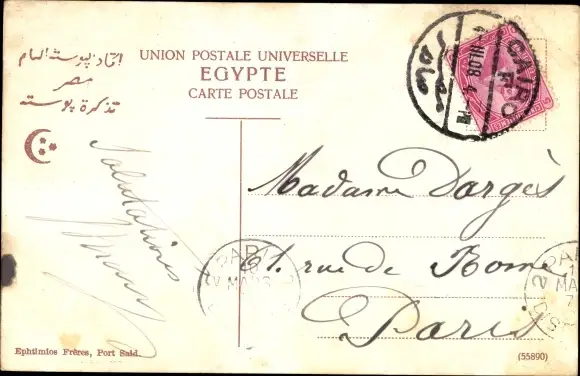 اتحاد بوسته العام
مصر
تذكرة بوسته
UNION POSTALE UNIVERSELLE
EGYPTE
CARTE POSTALE
CAIRO
III.08
Salutations
Madame Dargès
61. rue de Rome
Paris
PARI
Ephtimios Frères, Port Said.
(55890)